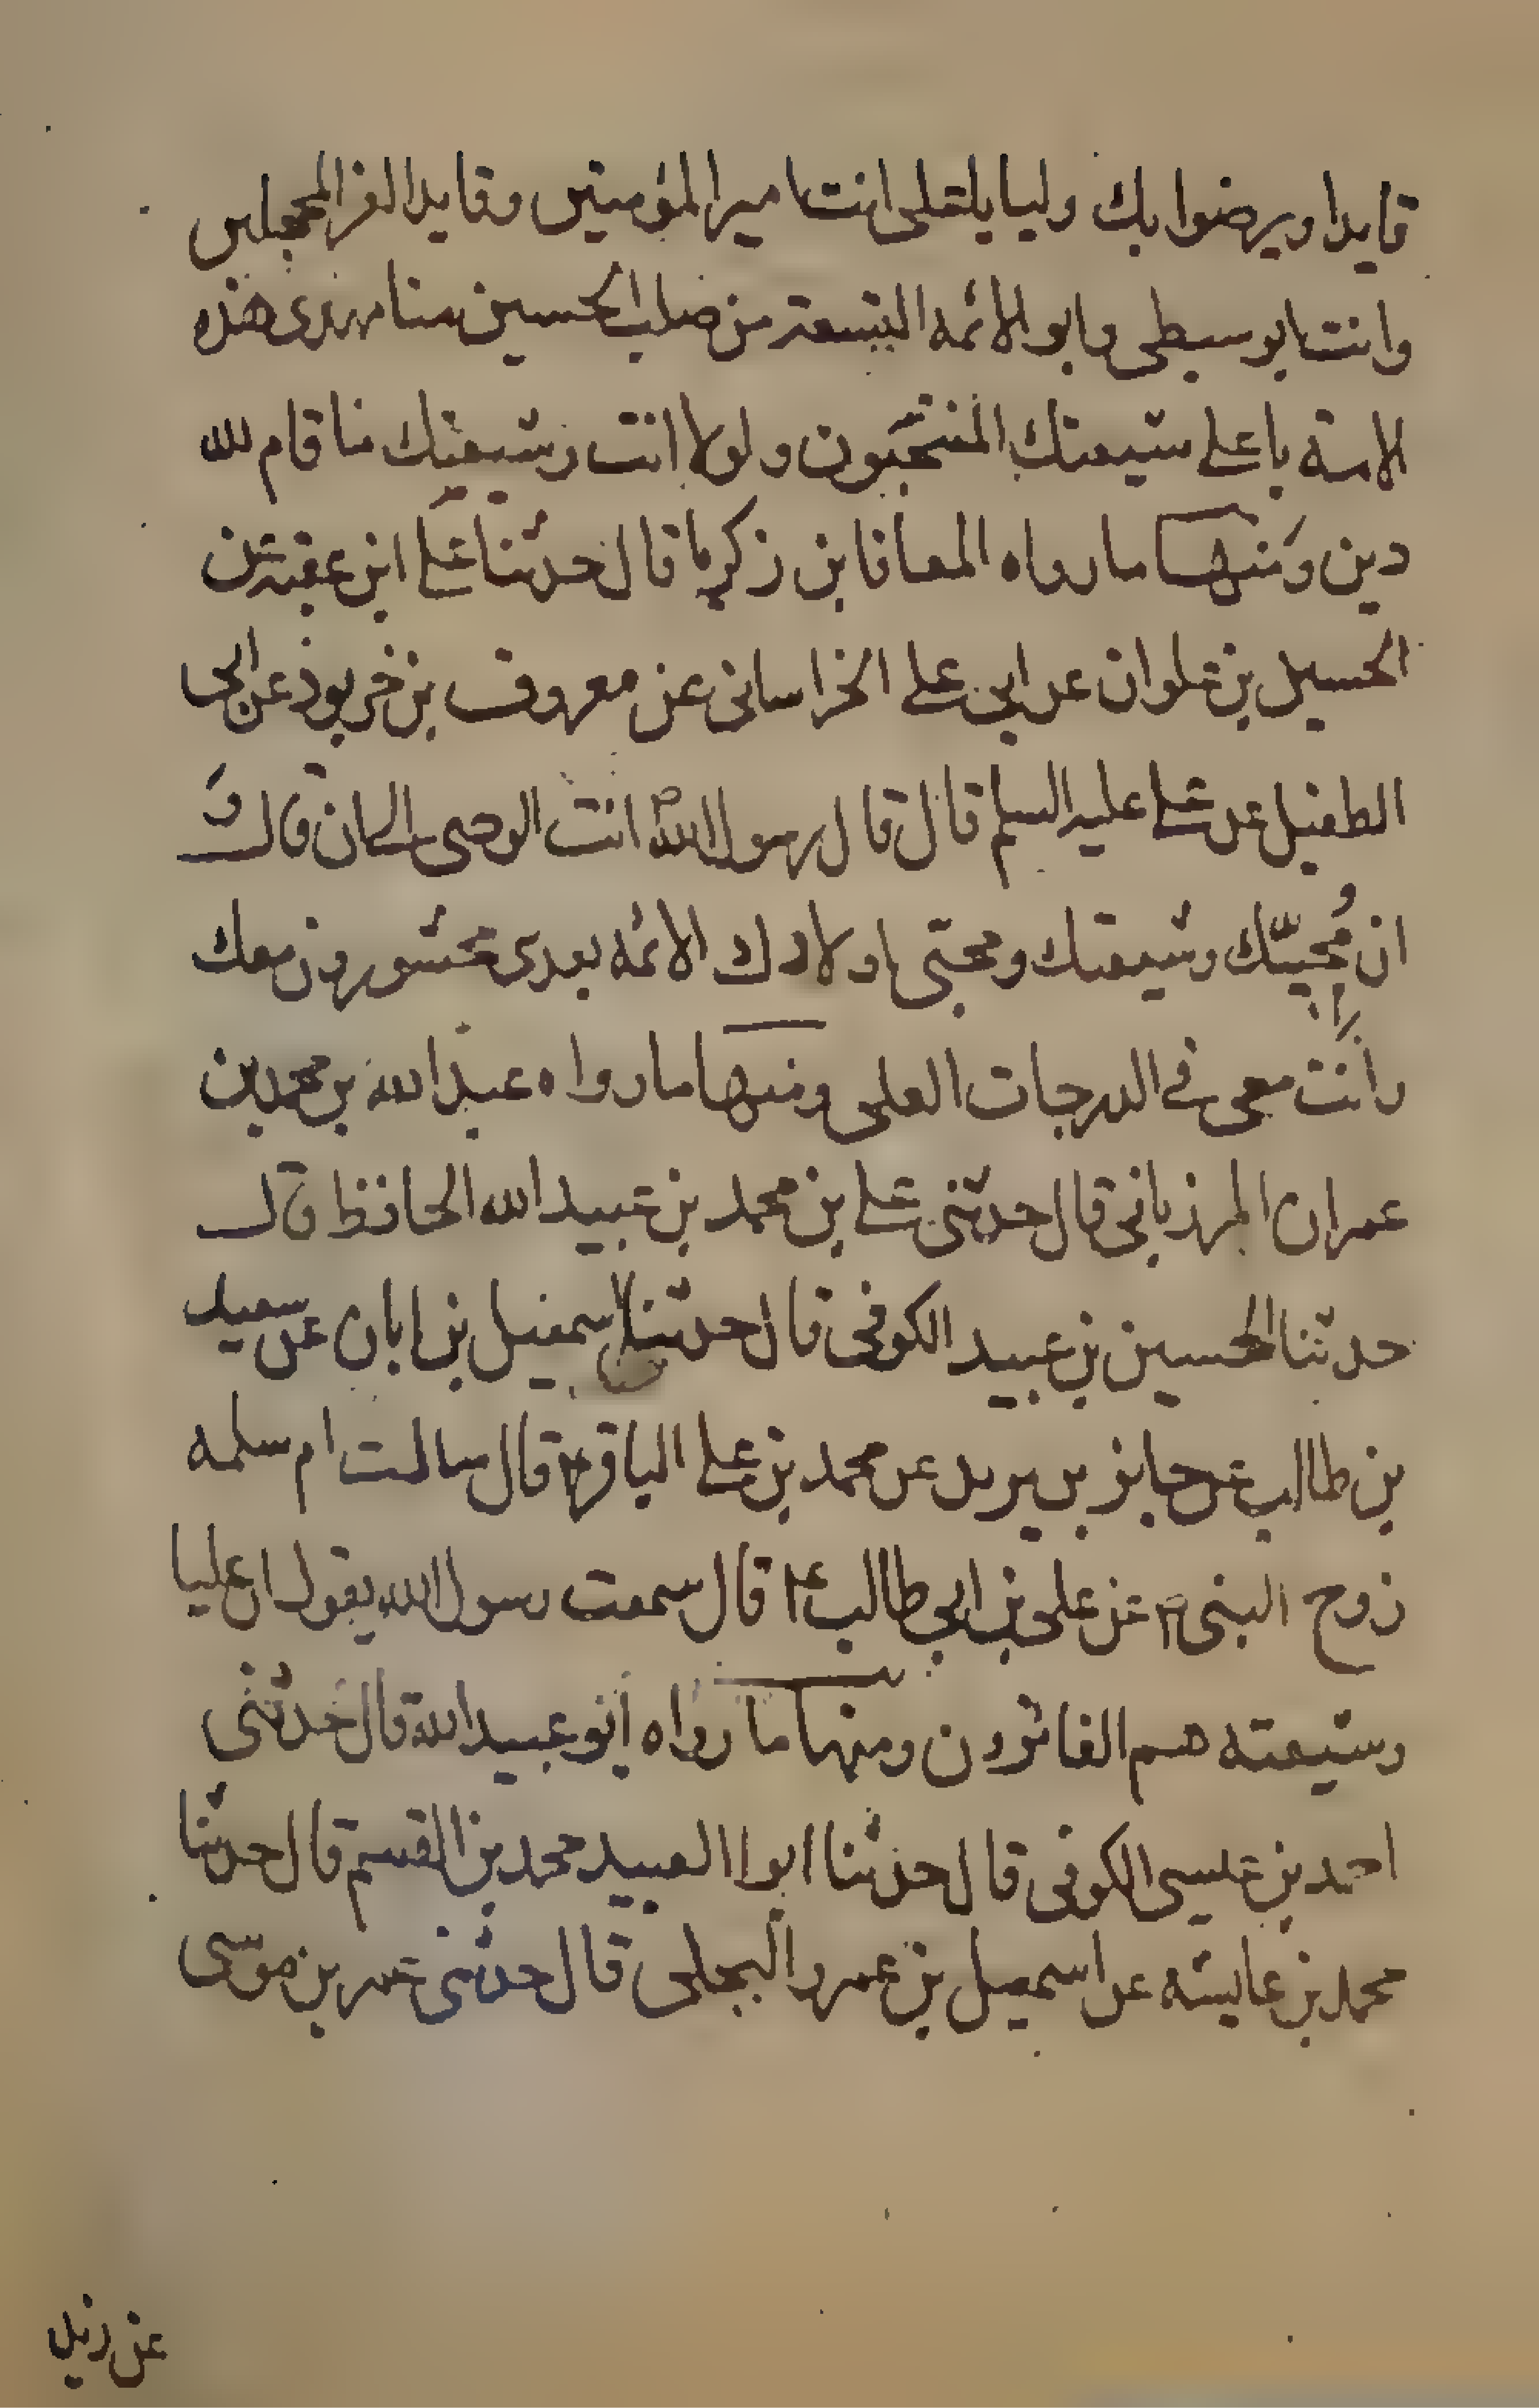 قايدا ويرضوا بك وليا يا على انت امير المؤمنين وقايد الغر المحجلين
وانت ابو سبطى وابو الائمه التسعة من صلب الحسين منا مهدى هذه
الامة يا على شيعتك المنتجبون ولولا انت وشيعتك ما قام لله
دين ومنها ما رواه المعافا بن زكريا قال حدثنا على ابن عقبة عن
الحسين بن علوان عن ابى على الخراسانى عن معروف بن خربوذ عن ابى
الطفيل عن على عليه السلم قال قال رسول الله ص انت الوصى الى ان قال
ان محبيك وشيعتك ومحبى اولادك الائمه بعدى محشورون معك
وانت معى فى الدرجات العلى ومنها ما رواه عبد الله بن محمد بن
عمران المرزبانى قال حدثنى على بن محمد بن عبيد الله الحافظ قال
حدثنا الحسين بن عبيد الكوفى قال حدثنا اسمعيل بن ابان عن سعيد
بن طالب عن جابر بن يزيد عن محمد بن على الباقر ع قال سالت ام سلمه
زوج النبى عن على بن ابى طالب ع قال سمعت رسول الله يقول ان عليا
وشيعته هم الفائزون ومنها ما رواه ابو عبيد الله قال حدثنى
احمد بن عيسى الكوفى قال حدثنا ابو العبيد محمد بن القسم قال حدثنا
محمد بن عايشه عن اسمعيل بن عمرو البجلى قال حدثنى عمر بن موسى
عن زيد